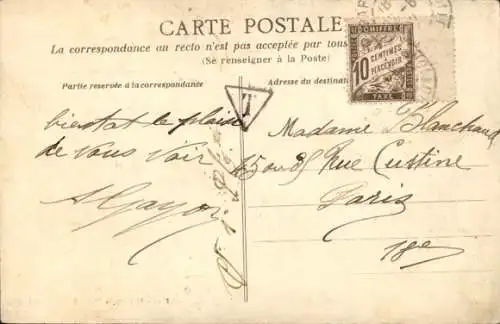 CARTE POSTALE
La correspondance au recto n'est pas acceptée par tous
(Se renseigner à la Poste)
Partie réservée à la correspondance
Adresse du destinat
CHIFFRE
10 CENTIMES
À PERCEVOIR
TAXE
T
bientot le plaisir
de vous voir
Madame Blanchard
45 ou 85 Rue Custine
Paris
18e